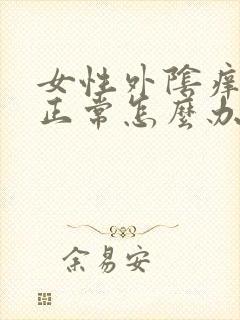 女性外陰癢
正常怎麼办
余易安